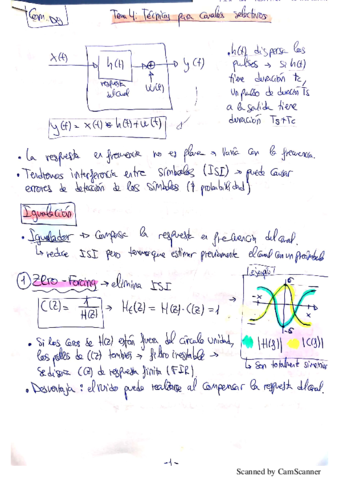 Com. Dig
Tema 4: Técnicas para canales selectivos
x(t)
h(t)
y(t)
respuesta
del canal
w(t)
y(t) = x(t) * h(t) + w(t)
· h(t) dispersa los
pulsos → si h(t)
tiene duración Tc,
un pulso de duración Ts
a la salida tiene
duración Ts+Tc
· La respuesta en frecuencia no es plana → varía con la frecuencia.
· Tendremos interferencia entre símbolos (ISI) → puede causar
errores de detección de los símbolos (↑ probabilidad)
Igualación
· Igualador → Compensa la respuesta en frecuencia del canal.
↳ reduce ISI pero tenemos que estimar previamente el canal con un
1 Zero-Forcing → elimina ISI
C(z) = 1/H(z)
→ HT(z) = H(z)·C(z) = 1
Ejemplo
|H(f)|
|C(f)|
↳ Son totalment
· Si los ceros de H(z) están fuera del círculo unidad,
los polos de C(z) también → filtro inestable →
Se diseña C(z) de respuesta finita (FIR).
· Desventaja: el ruido puede realzarse al compensar la respuesta del canal.
-1-
Scanned by CamScanner